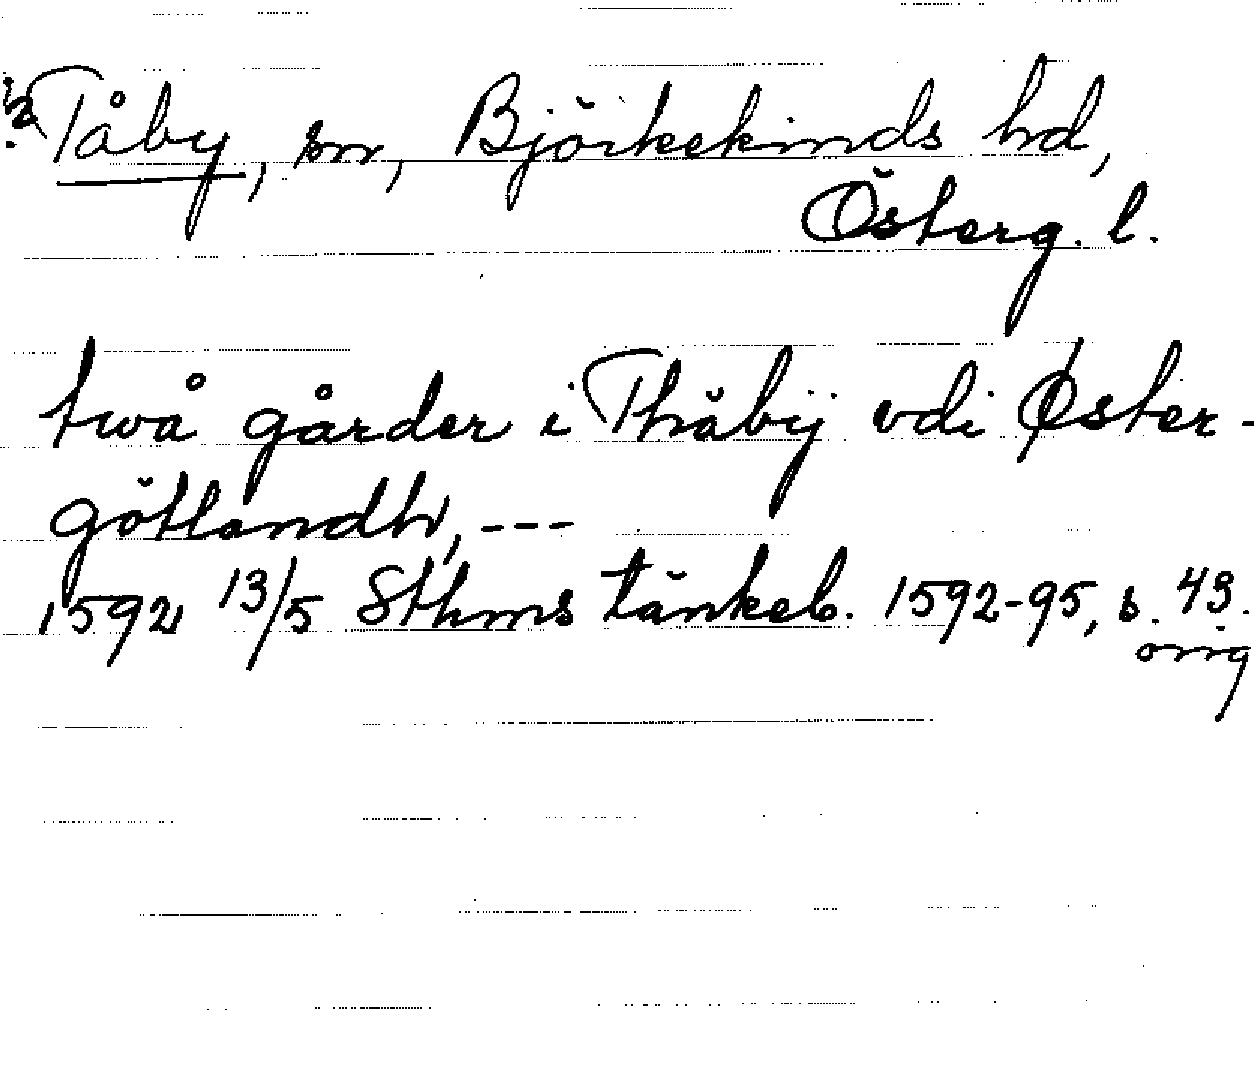 Tåby, sn, Björkekinds hd,
Österg. l.
twå gårder i Thåbij vdi Øster-
götlandh, ---
1592 13/5 Sthms tänkeb. 1592-95, s. 43.
orig